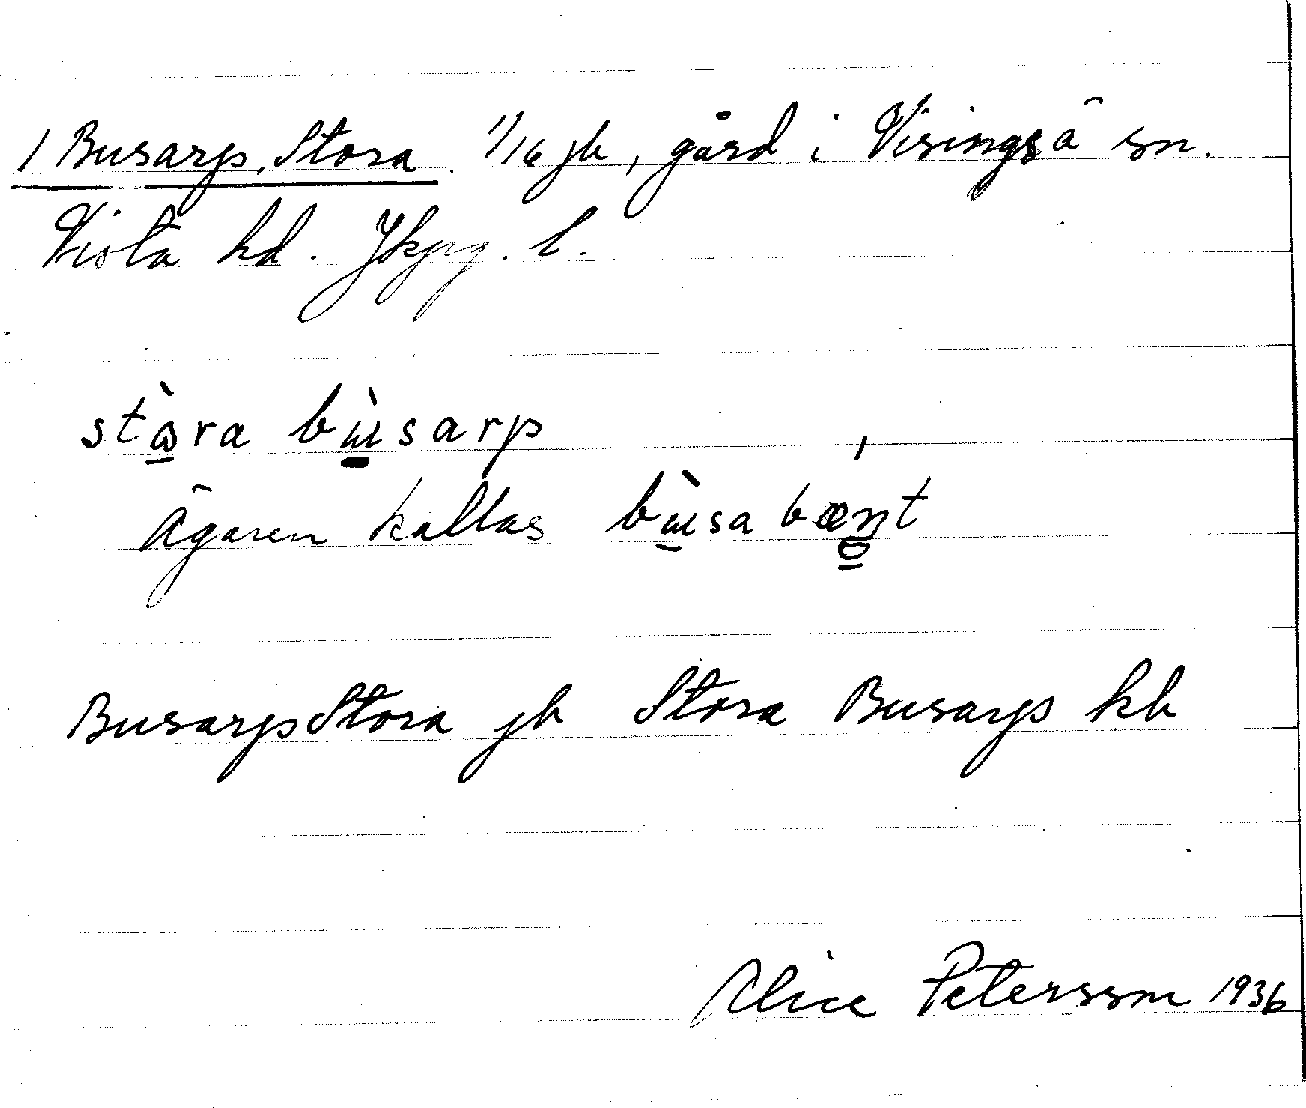 1 Busarp, Stora. 1/16 jb, gård i Visingsö sn.
Vista hd. Jkpg. l.
stò̱ra bù̱sarp
ägaren kallas bù̱sa bæn̥t
Busarp Stora jb Stora Busarp kb
Alice Petersson 1936